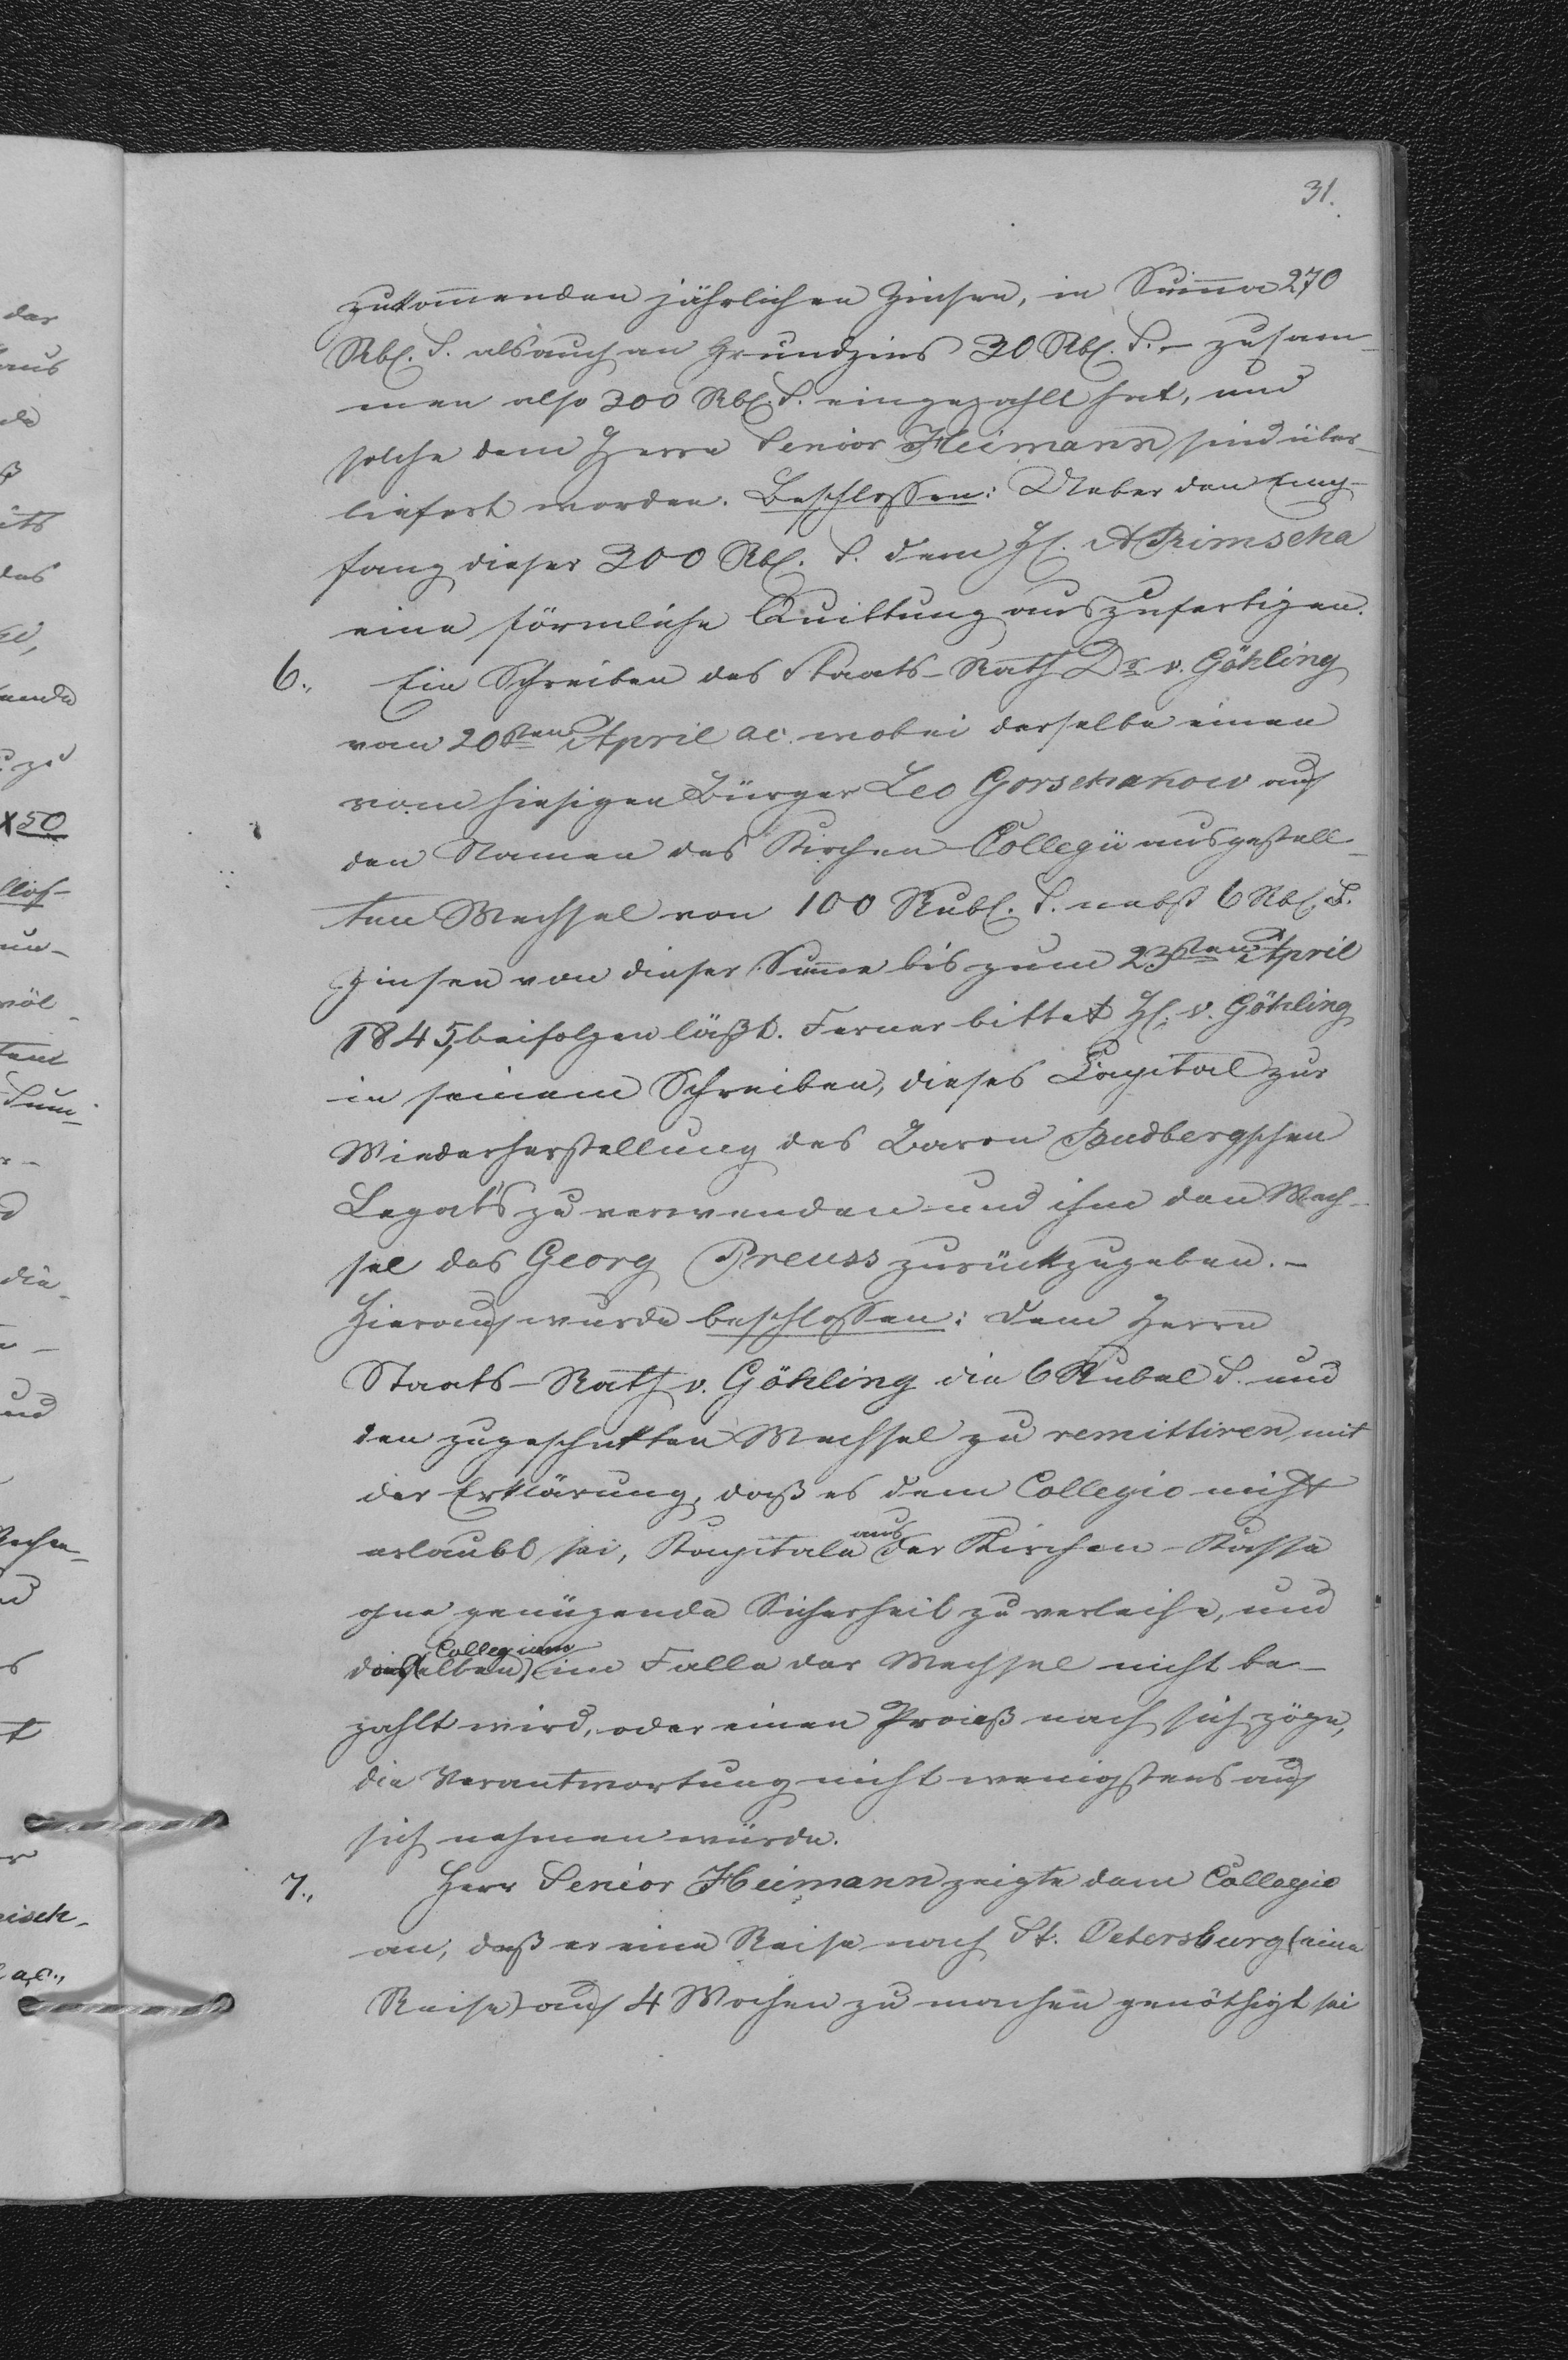 31.
zukommenden jährlichen Zinsen, in Summa 270
Rbl. S. als auch an Grundzins 30 Rbl. S. – zusam-
men also 300 Rbl. S. eingezahlt hat, und
solche dem Herrn Senior Heimann sind über-
liefert worden. Beschlossen: Ueber den Emp-
fang dieser 300 Rbl. S. dem H. A Rimscha
eine förmliche Quittung auszufertigen.
6., Ein Schreiben des Staats-Rath Dr v. Göhling
vom 20sten April ac. wobei derselbe einen
vom hiesigen Bürger Leo Gorschanow auf
den Namen des Kirchen-Collegii ausgestell-
ten Wechsel von 100 Rubl. S. nebst 6 Rbl. S.
Zinsen von dieser Suma bis zum 23sten April
1845, beifolgen läßt. Ferner bittet H. v. Göhling
in seinem Schreiben, dieses Capital zur
Wiederherstellung des Baron Budbergschen
Legats zu verwenden und ihm den Wech-
sel des Georg Preuss zurückzugeben. –
Hierauf wurde beschlossen: dem Herrn
Staats-Rath v. Göhling die 6 Rubel S. und
den zugeschickten Wechsel zu remittiren, mit
der Erklärung, daß es dem Collegio nicht
erlaubt sei, Kapitale aus der Kirchen-Kasse
ohne genügende Sicherheit zu verleihe, und
Collegium
im Falle der Wechsel nicht be-
zahlt wird, oder einen Proceß nach sich zöge,
die Verantwortung nicht wenigstens auf
sich nehmen würde.
7., Herr Senior Heimann zeigte dem Collegio
an, daß er eine Reise nach St. Petersburg (eine
Reise) auf 4 Wochen zu machen genöthigt sei